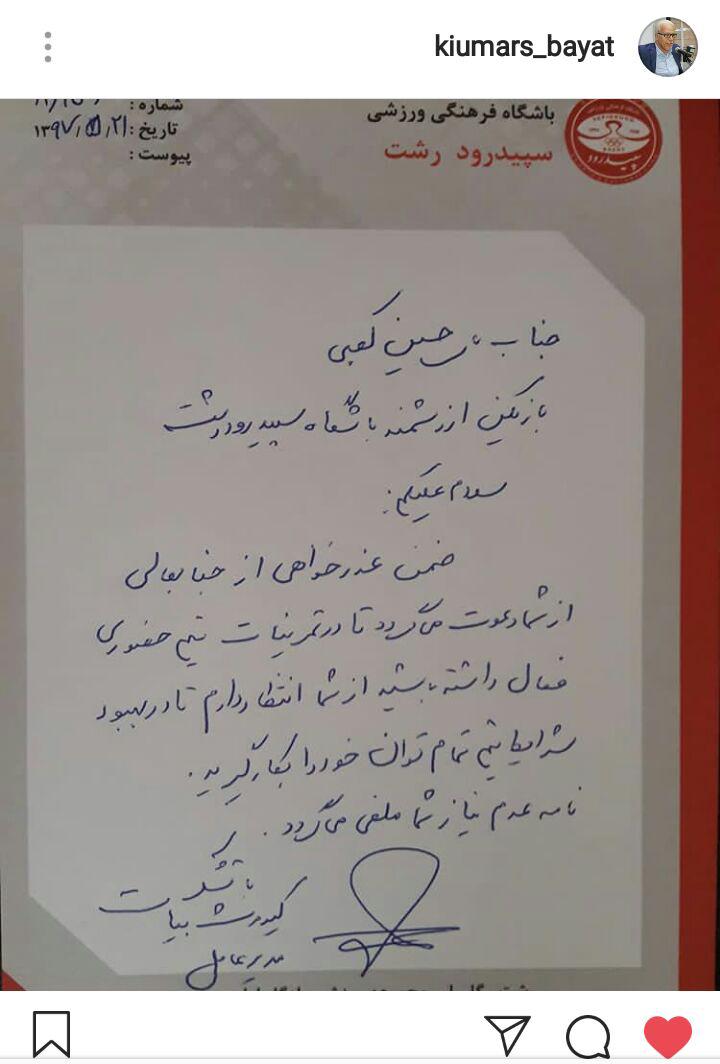 kiumars_bayat
باشگاه فرهنگی ورزشی
سپیدرود رشت
شماره :
تاریخ : ۱۳۹۷/ /۲۱
پیوست :
جناب آقای حسین کعبی
بازیکن ارزشمند باشگاه سپیدرود رشت
سلام علیکم:
ضمن عذرخواهی از جنابعالی
از شما دعوت می‌گردد تا در تمرینات تیم حضوری
فعال داشته باشید از شما انتظار دارم تا در بهبود
شرایط تیم تمام توان خود را بکار گیرید.
نامه عدم نیاز شما ملغی می‌گردد.
با تشکر
کیومرث بیات
مدیرعامل